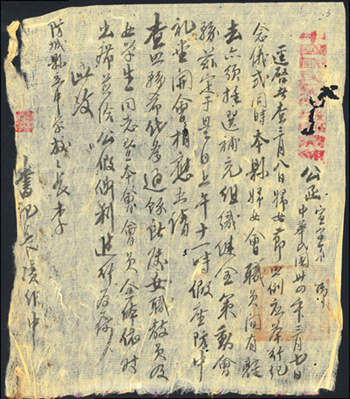 公函 宣字第 號
中華民國卅四年三月七日
逕啓者查三月八日婦女節例應舉行紀
念儀式同時本縣婦女會職員間有離
去亦須推選補充組織健全策動會
務茲定于是日上午十一時假座防中
礼堂開會相應函請
查照希代為通飭 女職教員及
女學生同志 本會會員全体依時
出席並給公假便利進行為荷
此致
防城縣立中學校校長李
書記長陳作中